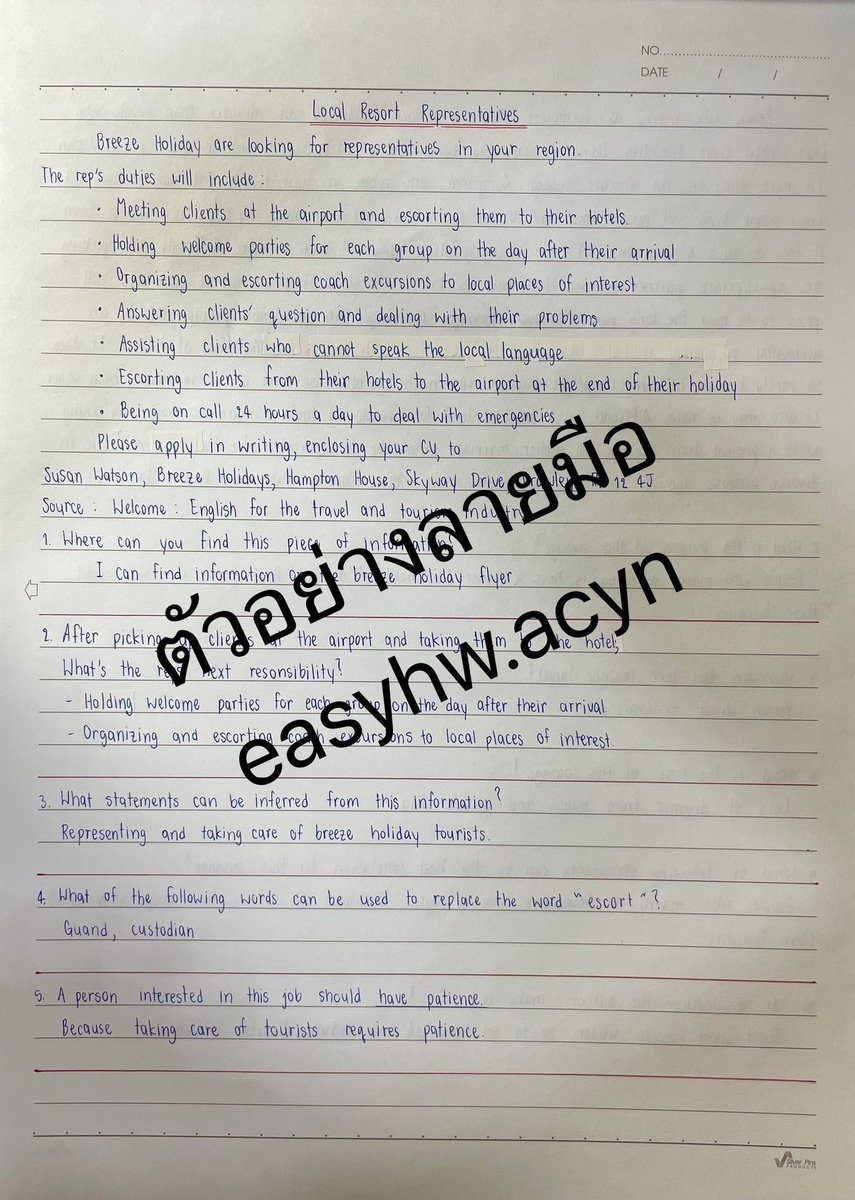 NO.
DATE / /
Local Resort Representatives
Breeze Holiday are looking for representatives in your region.
The rep's duties will include :
• Meeting clients at the airport and escorting them to their hotels.
• Holding welcome parties for each group on the day after their arrival
• Organizing and escorting coach excursions to local places of interest
• Answering clients' question and dealing with their problems
• Assisting clients who cannot speak the local language
• Escorting clients from their hotels to the airport at the end of their holiday
• Being on call 24 hours a day to deal with emergencies
Please apply in writing, enclosing your CV, to
Susan Watson, Breeze Holidays, Hampton House, Skyway Drive, 12 4J
Source : Welcome : English for the travel and tourism industry
1. Where can you find this piece of information?
I can find information on the breeze holiday flyer.
2. After picking up clients at the airport and taking them to the hotel,
What's the rep's next resonsibility?
- Holding welcome parties for each group on the day after their arrival
- Organizing and escorting coach excursions to local places of interest.
3. What statements can be inferred from this information?
Representing and taking care of breeze holiday tourists.
4. What of the following words can be used to replace the word "escort"?
Guand, custodian
5. A person interested in this job should have patience.
Because taking care of tourists requires patience.
ตัวอย่างลายมือ
easyhw.acyn
Silver Pine
PRODUCTS